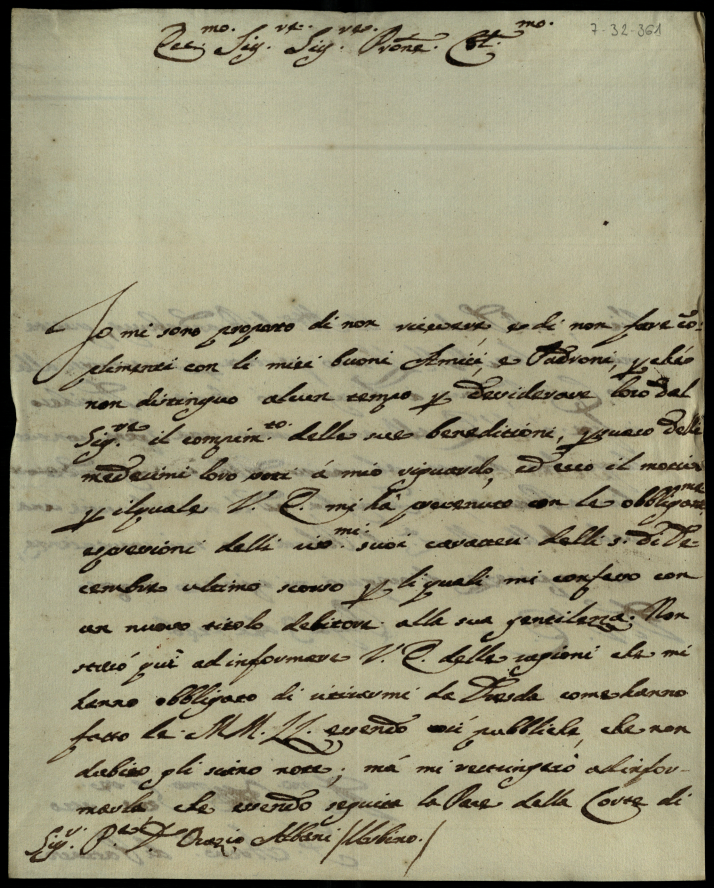 Ecc.mo Sig.re Sig.re Prone Col.mo
7-32-361
Io mi sono proposto di non ricevere, e di non fare co-
plimenti con li miei buoni Amici, e Padroni, p che
non distinguo alcun tempo p desiderare loro dal
Sig.re il compim.to delle sue beneditioni,
medesimi loro a mio riguardo, ed ecco il motivo
p il quale V. E. mi hà prevenuto con le obbligan.me
espressioni delli riv.mi suoi caratteri delli 5. di De-
cembre ultimo scorso p li quali mi confesso con
un nuovo titolo debitore alla sua gentilezza. Non
starò quì ad informare V. E. delle cagioni che mi
hanno obbligato di ritirarmi da Dresda come hanno
fatto le MM. LL. essendo così pubbliche, che non
dubito gli siano note; mà mi restringerò ad infor-
marla che essendo seguita la Pace della Corte di
Sig.r P.e D. Orazio Albani /Urbino./